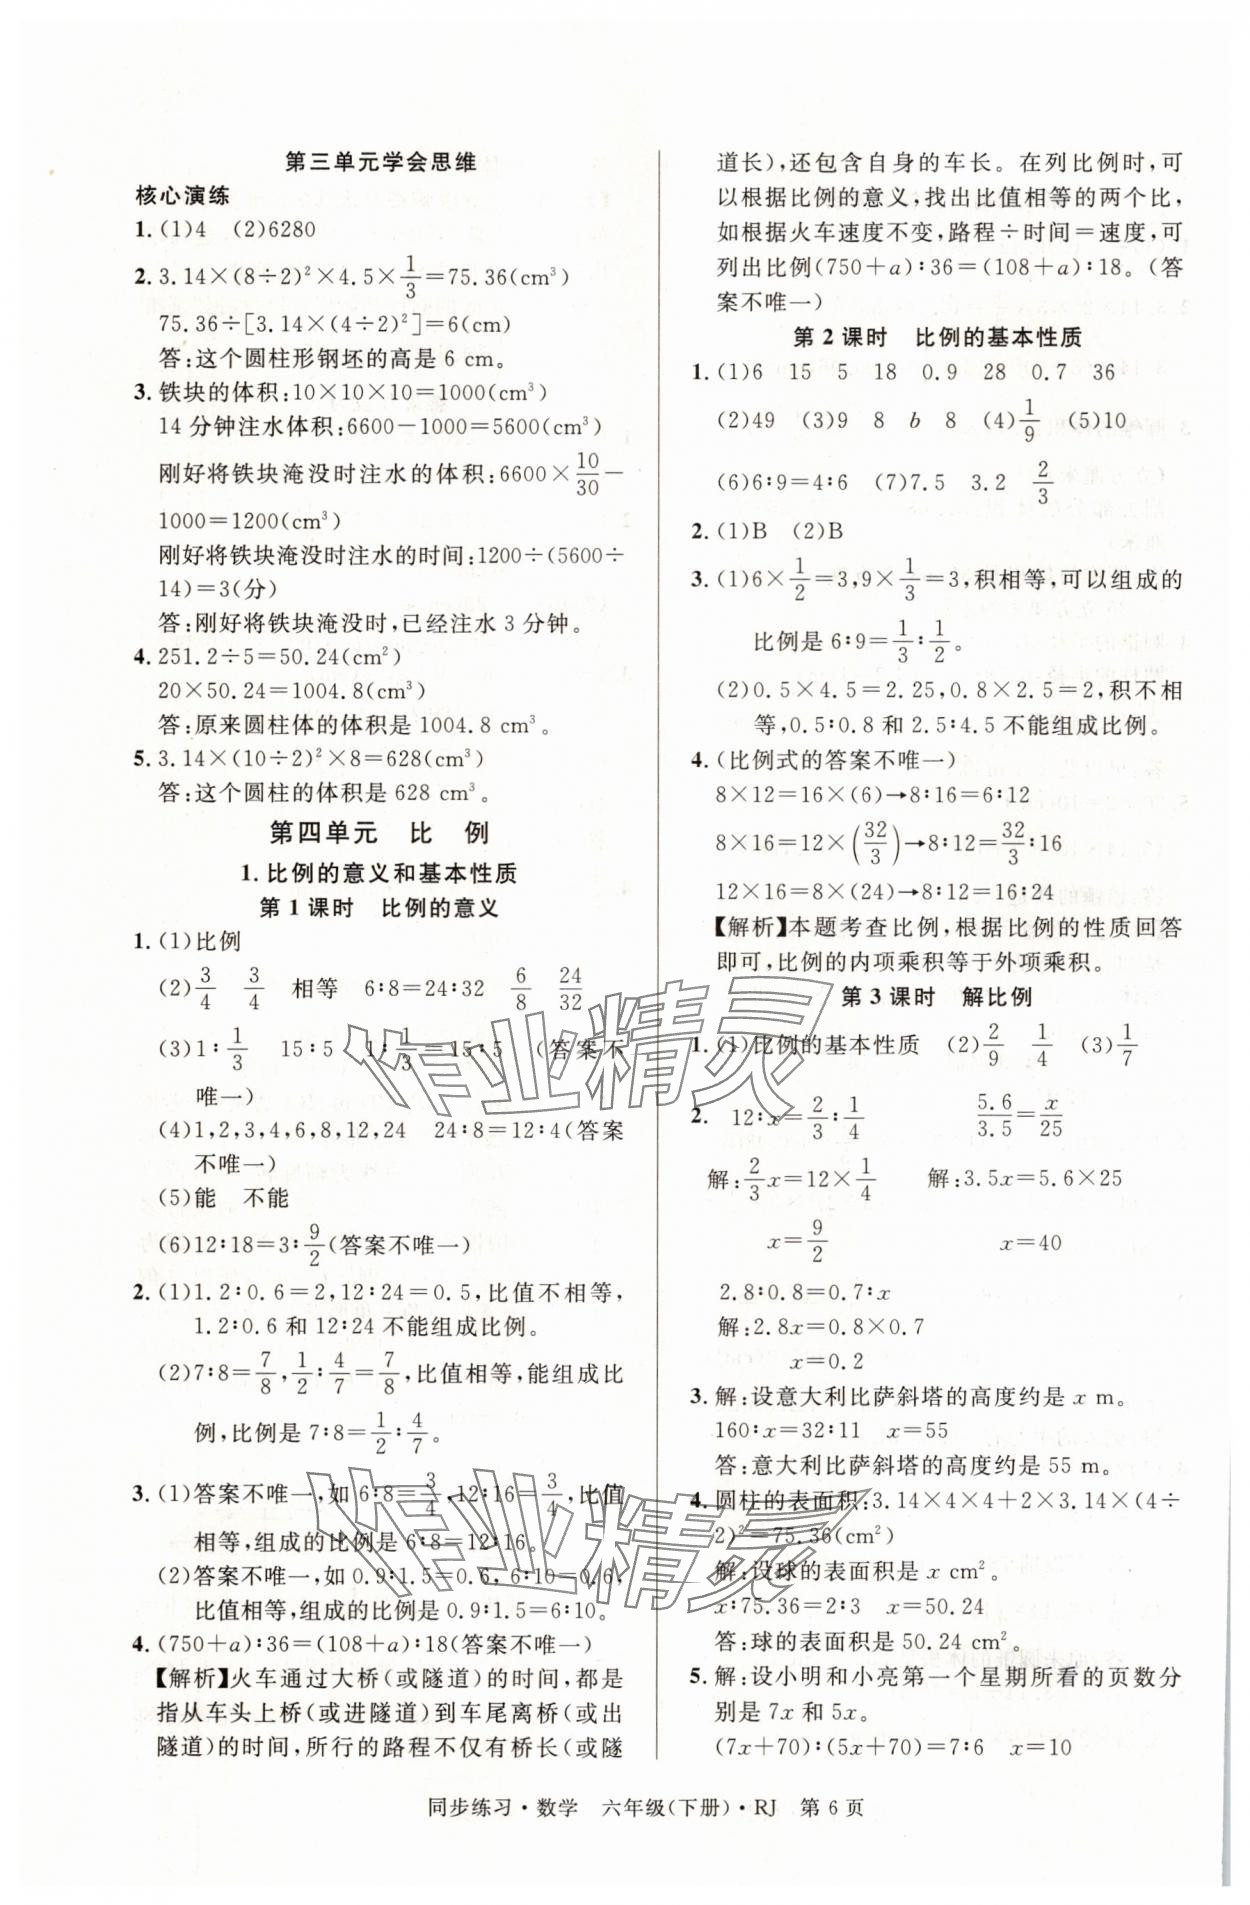 第三单元学会思维
核心演练
1. (1)4 (2)6280
2. 3.14×(8÷2)²×4.5×1/3=75.36(cm³)
75.36÷[3.14×(4÷2)²]=6(cm)
答:这个圆柱形钢坯的高是 6 cm。
3. 铁块的体积:10×10×10=1000(cm³)
14 分钟注水体积:6600-1000=5600(cm³)
刚好将铁块淹没时注水的体积:6600×10/30-
1000=1200(cm³)
刚好将铁块淹没时注水的时间:1200÷(5600÷
14)=3(分)
答:刚好将铁块淹没时,已经注水 3 分钟。
4. 251.2÷5=50.24(cm²)
20×50.24=1004.8(cm³)
答:原来圆柱体的体积是 1004.8 cm³。
5. 3.14×(10÷2)²×8=628(cm³)
答:这个圆柱的体积是 628 cm³。
第四单元 比 例
1. 比例的意义和基本性质
第 1 课时 比例的意义
1. (1)比例
(2)3/4 3/4 相等 6∶8=24∶32 6/8 24/32
(3)1∶1/3 15∶5 1∶1/3=15∶5 (答案不
唯一)
(4)1,2,3,4,6,8,12,24 24∶8=12∶4(答案
不唯一)
(5)能 不能
(6)12∶18=3∶9/2(答案不唯一)
2. (1)1.2∶0.6=2,12∶24=0.5,比值不相等,
1.2∶0.6 和 12∶24 不能组成比例。
(2)7∶8=7/8,1/2∶4/7=7/8,比值相等,能组成比
例,比例是 7∶8=1/2∶4/7。
3. (1)答案不唯一,如 6∶8=3/4,12∶16=3/4,比值
相等,组成的比例是 6∶8=12∶16。
(2)答案不唯一,如 0.9∶1.5=0.6,6∶10=0.6,
比值相等,组成的比例是 0.9∶1.5=6∶10。
4. (750+a)∶36=(108+a)∶18(答案不唯一)
【解析】火车通过大桥(或隧道)的时间,都是
指从车头上桥(或进隧道)到车尾离桥(或出
隧道)的时间,所行的路程不仅有桥长(或隧
道长),还包含自身的车长。在列比例时,可
以根据比例的意义,找出比值相等的两个比,
如根据火车速度不变,路程÷时间=速度,可
列出比例(750+a)∶36=(108+a)∶18。(答
案不唯一)
第 2 课时 比例的基本性质
1. (1)6 15 5 18 0.9 28 0.7 36
(2)49 (3)9 8 b 8 (4)1/9 (5)10
(6)6∶9=4∶6 (7)7.5 3.2 2/3
2. (1)B (2)B
3. (1)6×1/2=3,9×1/3=3,积相等,可以组成的
比例是 6∶9=1/3∶1/2。
(2)0.5×4.5=2.25,0.8×2.5=2,积不相
等,0.5∶0.8 和 2.5∶4.5 不能组成比例。
4. (比例式的答案不唯一)
8×12=16×(6)→8∶16=6∶12
8×16=12×(32/3)→8∶12=32/3∶16
12×16=8×(24)→8∶12=16∶24
【解析】本题考查比例,根据比例的性质回答
即可,比例的内项乘积等于外项乘积。
第 3 课时 解比例
1. (1)比例的基本性质 (2)2/9 1/4 (3)1/7
2. 12∶x=2/3∶1/4 5.6/3.5=x/25
解:2/3x=12×1/4 解:3.5x=5.6×25
x=9/2 x=40
2.8∶0.8=0.7∶x
解:2.8x=0.8×0.7
x=0.2
3. 解:设意大利比萨斜塔的高度约是 x m。
160∶x=32∶11 x=55
答:意大利比萨斜塔的高度约是 55 m。
4. 圆柱的表面积:3.14×4×4+2×3.14×(4÷
2)²=75.36(cm²)
解:设球的表面积是 x cm²。
x∶75.36=2∶3 x=50.24
答:球的表面积是 50.24 cm²。
5. 解:设小明和小亮第一个星期所看的页数分
别是 7x 和 5x。
(7x+70)∶(5x+70)=7∶6 x=10
同步练习·数学 六年级(下册)·RJ 第 6 页
作业精灵
作业精灵